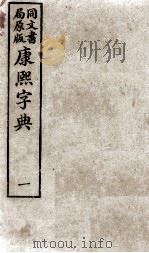 同文書
局原版
康熙字典
一
mtoou.info